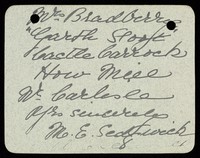 Mrs Bradberry
"Garth Foot"
Castle Carrock
How Mill
Nr Carlisle
Yrs sincerely
M. E. Sedgwick